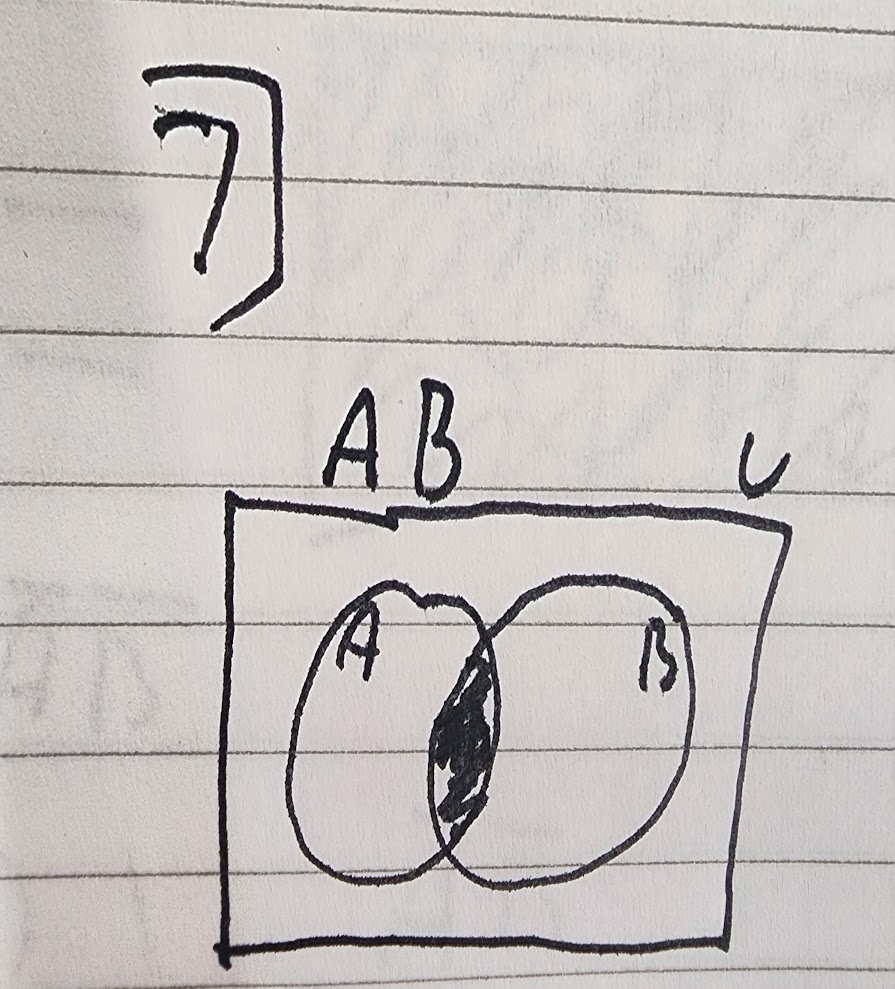 7)
A B U
A B